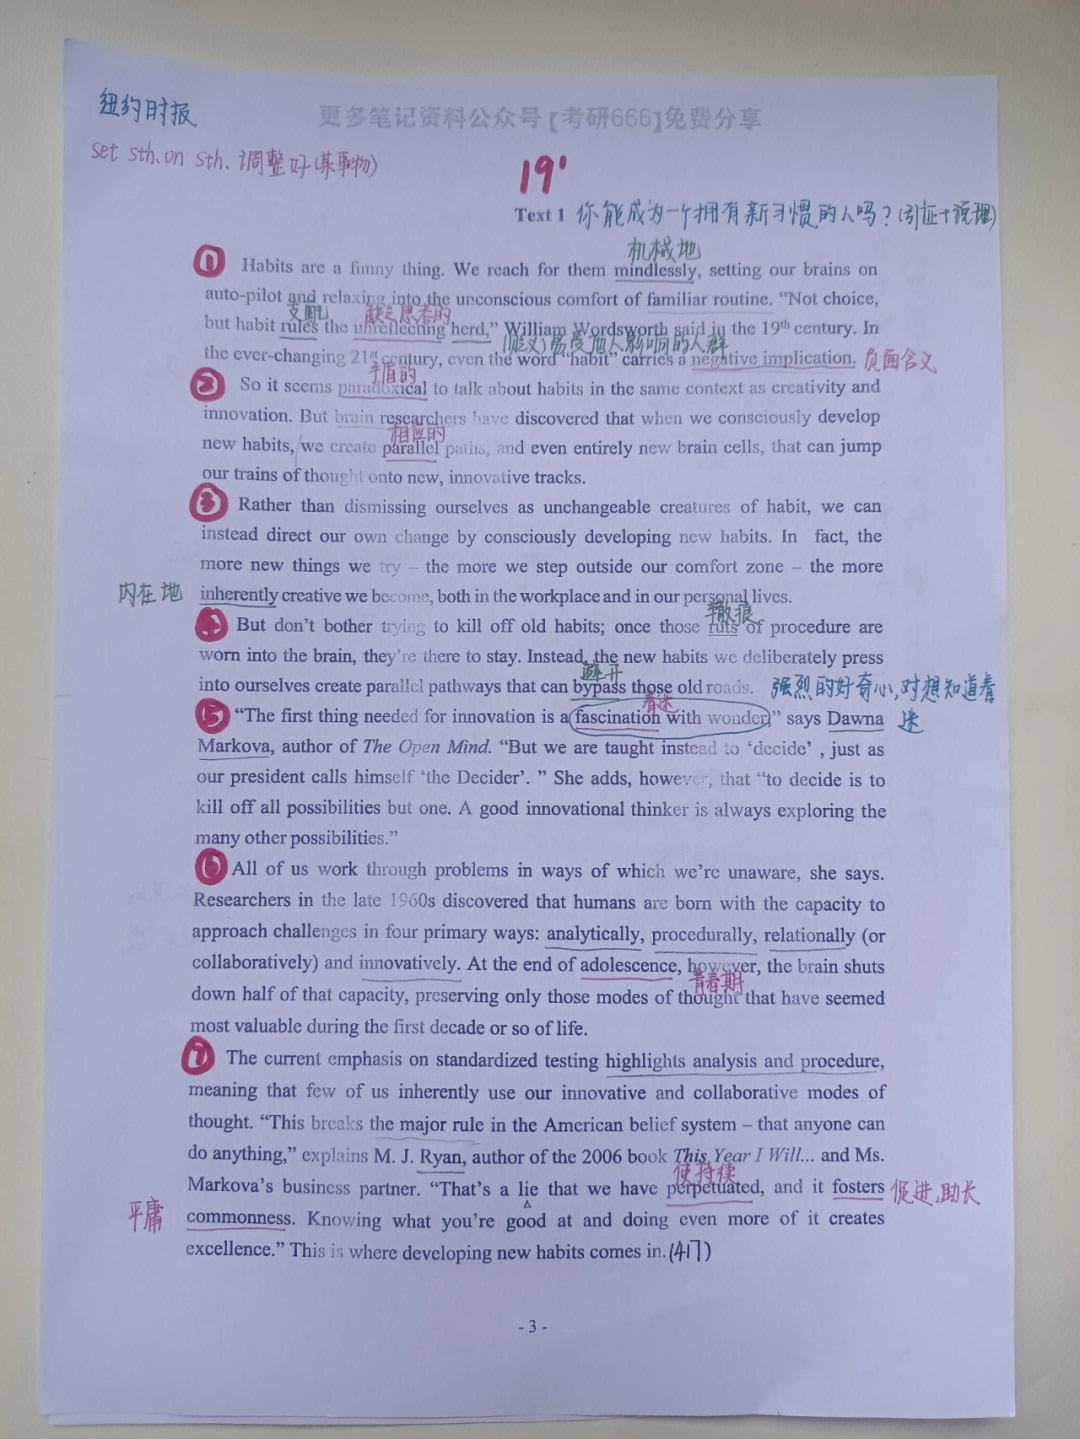 纽约时报
更多笔记资料公众号【考研666】免费分享
set sth. on sth. 调整好(某事物)
19'
Text 1 你能成为一个拥有新习惯的人吗?(引证+说理)
机械地
① Habits are a funny thing. We reach for them mindlessly, setting our brains on
auto-pilot and relaxing into the unconscious comfort of familiar routine. “Not choice,
支配 缺乏思考的
but habit rules the unreflecting herd,” William Wordsworth said in the 19th century. In
(贬义)易受他人影响的人群
the ever-changing 21st century, even the word “habit” carries a negative implication. 负面含义
矛盾的
② So it seems paradoxical to talk about habits in the same context as creativity and
innovation. But brain researchers have discovered that when we consciously develop
相应的
new habits, we create parallel paths, and even entirely new brain cells, that can jump
our trains of thought onto new, innovative tracks.
③ Rather than dismissing ourselves as unchangeable creatures of habit, we can
instead direct our own change by consciously developing new habits. In fact, the
more new things we try – the more we step outside our comfort zone – the more
内在地 inherently creative we become, both in the workplace and in our personal lives.
辙痕
④ But don’t bother trying to kill off old habits; once those ruts of procedure are
worn into the brain, they’re there to stay. Instead, the new habits we deliberately press
避开
into ourselves create parallel pathways that can bypass those old roads. 强烈的好奇心,对想知道着
着迷
⑤ “The first thing needed for innovation is a fascination with wonder,” says Dawna 迷
Markova, author of The Open Mind. “But we are taught instead to ‘decide’ , just as
our president calls himself ‘the Decider’. ” She adds, however, that “to decide is to
kill off all possibilities but one. A good innovational thinker is always exploring the
many other possibilities.”
⑥ All of us work through problems in ways of which we’re unaware, she says.
Researchers in the late 1960s discovered that humans are born with the capacity to
approach challenges in four primary ways: analytically, procedurally, relationally (or
collaboratively) and innovatively. At the end of adolescence, however, the brain shuts
青春期
down half of that capacity, preserving only those modes of thought that have seemed
most valuable during the first decade or so of life.
⑦ The current emphasis on standardized testing highlights analysis and procedure,
meaning that few of us inherently use our innovative and collaborative modes of
thought. “This breaks the major rule in the American belief system – that anyone can
do anything,” explains M. J. Ryan, author of the 2006 book This Year I Will... and Ms.
使持续
Markova’s business partner. “That’s a lie that we have perpetuated, and it fosters 促进,助长
平庸 commonness. Knowing what you’re good at and doing even more of it creates
excellence.” This is where developing new habits comes in.(417)
- 3 -